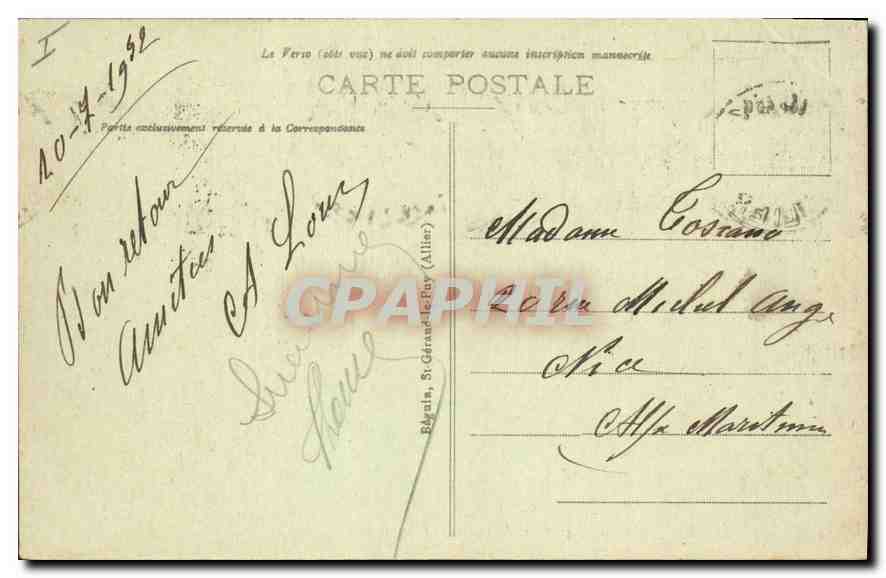 I
Le Verso (côté vue) ne doit comporter aucune inscription manuscrite
CARTE POSTALE
20-7-1952
Partie exclusivement réservée à la Correspondance
Bon retour
Amities
A Loui
Suzanne
Béguin, St-Gérand-le-Puy (Allier)
CPAPHIL
Madame Toscano
2 o rue Michel Ange
Nice
Alpe Maritimes